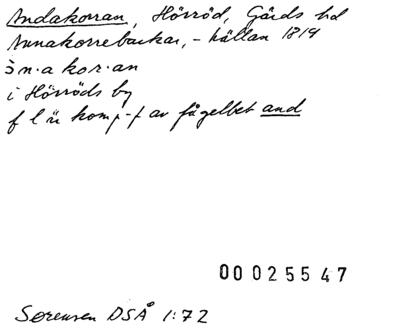 Andakorran, Hörröd, Gärds hd
Annakorrebackar, - källan 1819
ån.a kor.an
i Hörröds by
f l ü komp-f av fågelbet and
00 025547
Sørensen DSÅ 1:72